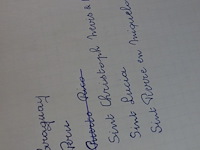 Paraguay
Peru
Puerto Rico
Sint Christoph Nevis &
Sint Lucia
Sint Pierre en Miquelo